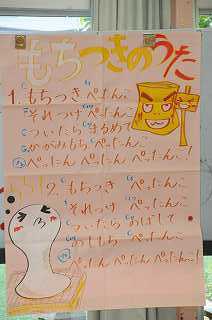 もちつきのうた
1. もちつき ぺったんこ
それつけ ぺったんこ
ついたら まるめて
かがみもち ぺったんこ
ぺったん ぺったん ぺったんこ!
2. もちつき ぺったんこ
それつけ ぺったんこ
ついたら のばして
おしもち ぺったんこ
ぺったん ぺったん ぺったんこ!